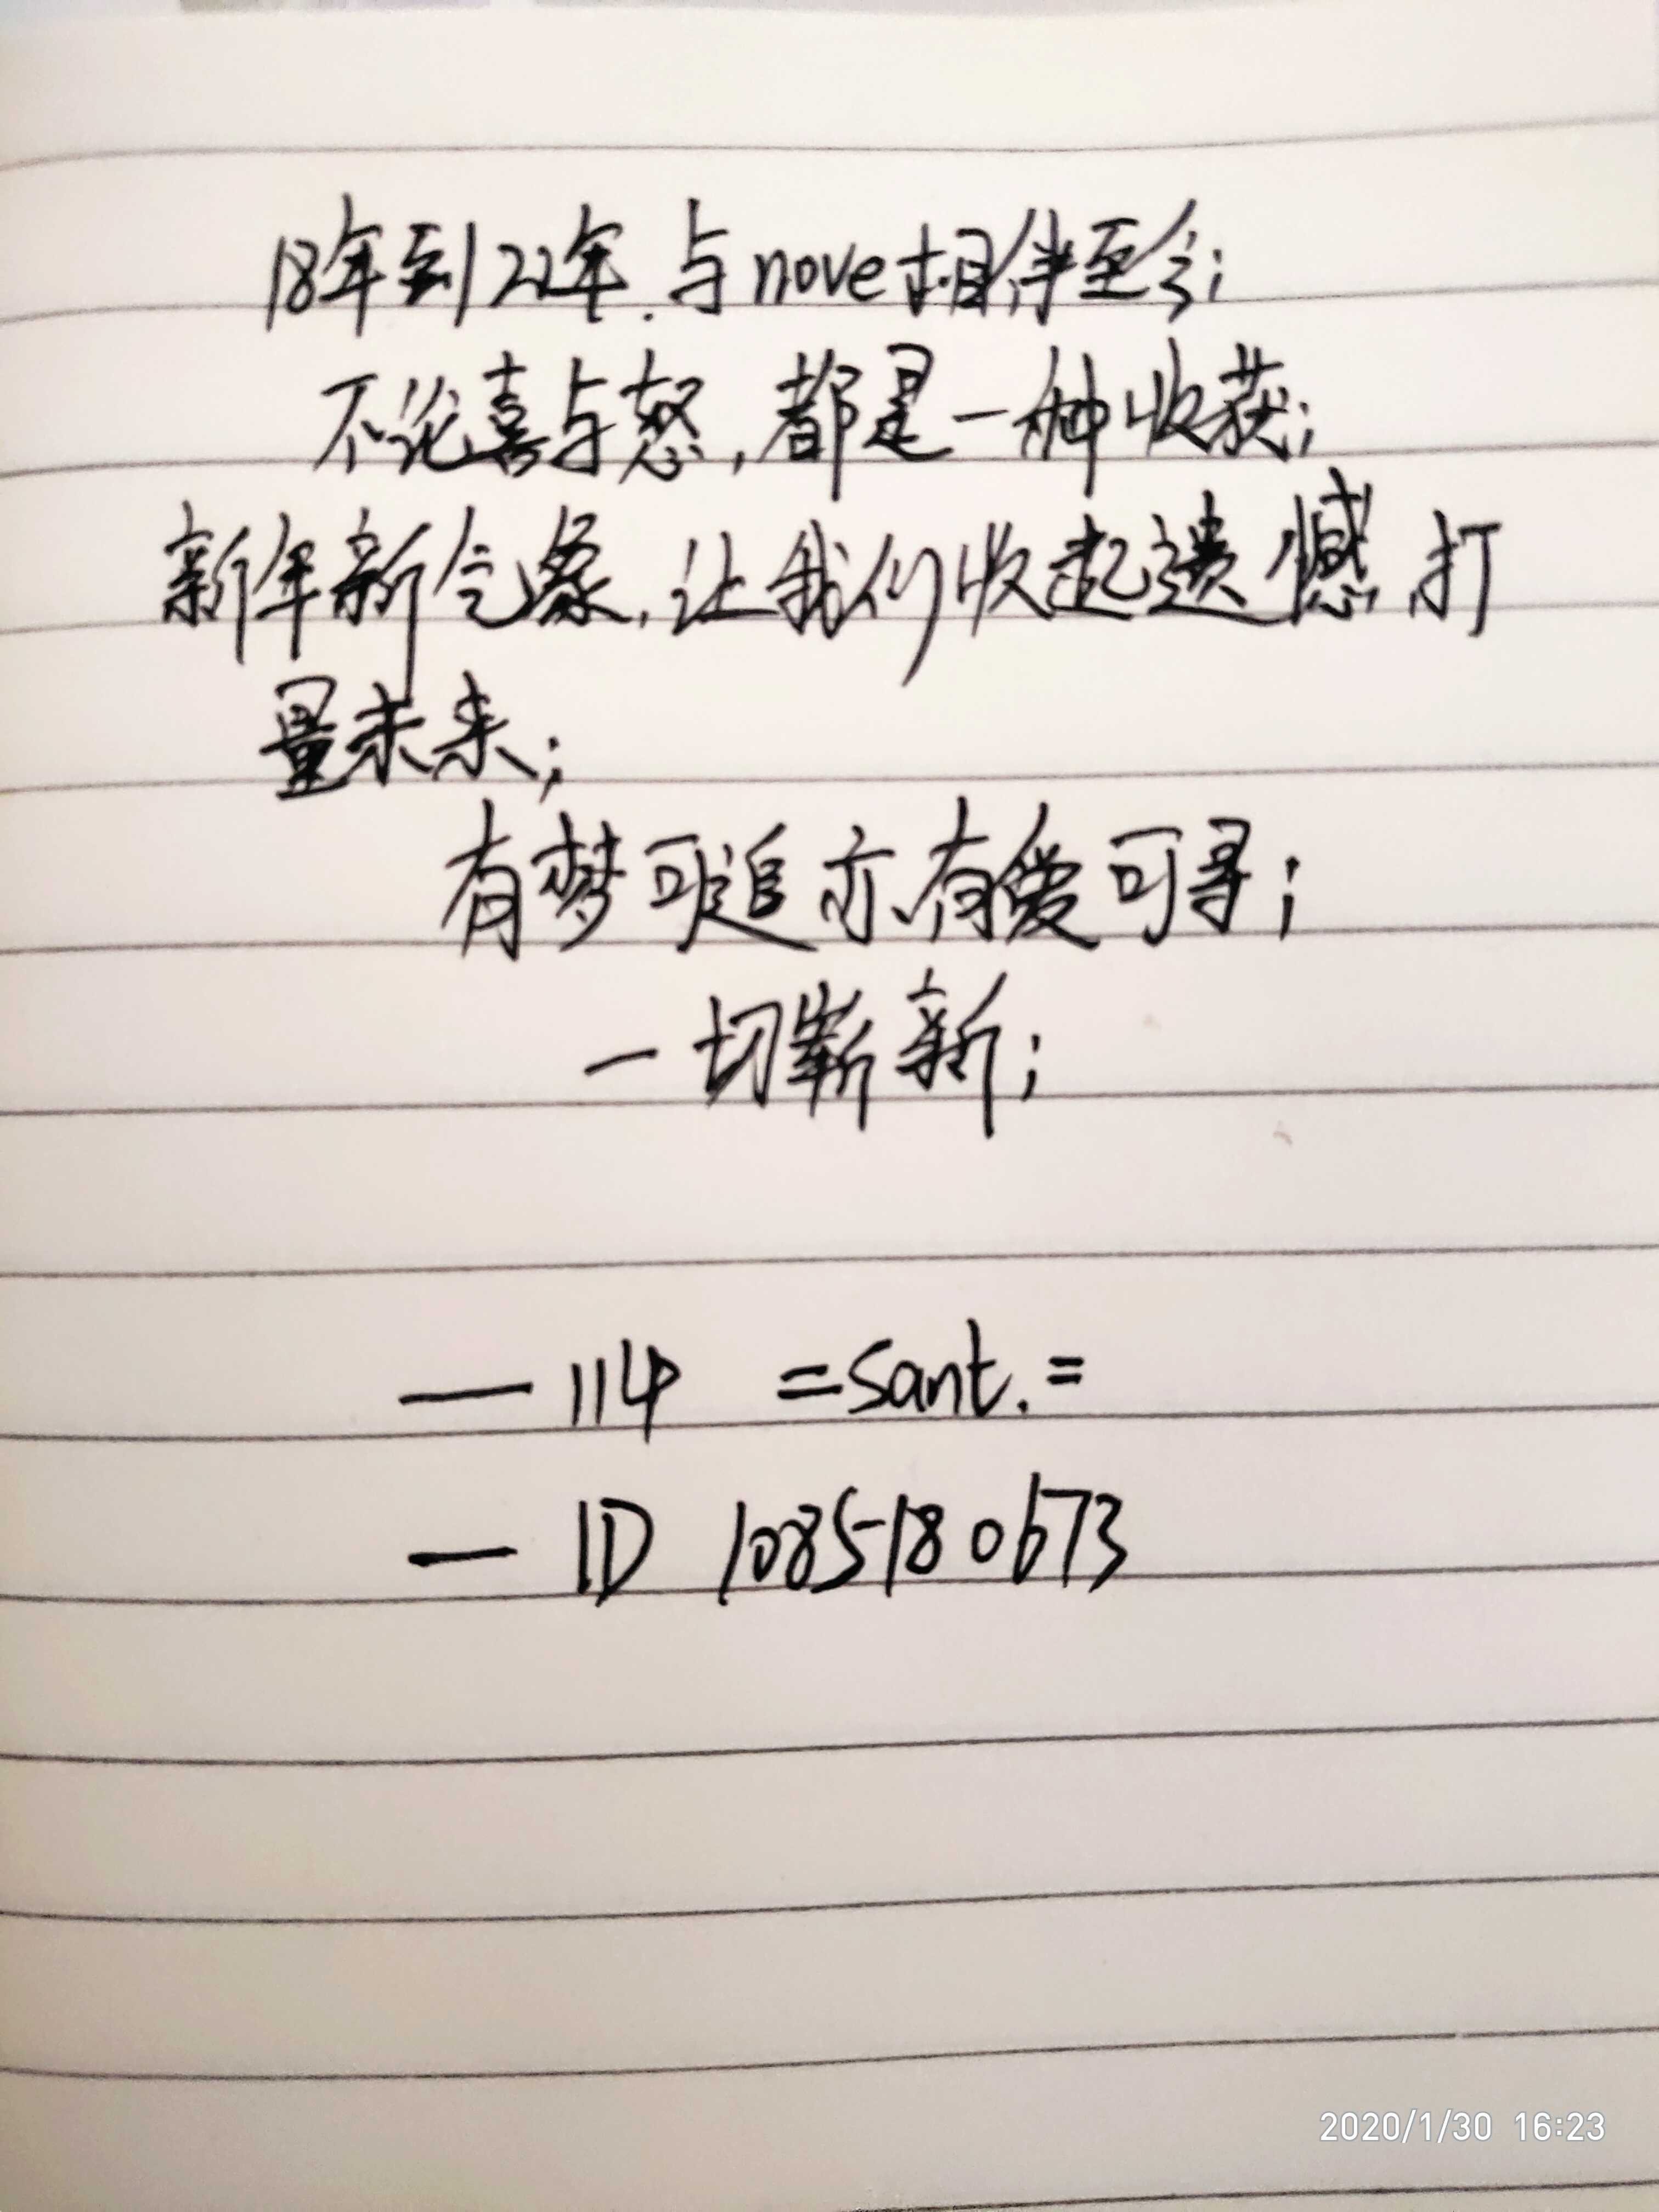 18年到22年.与nove相伴至今;
不论喜与怒,都是一种收获;
新年新气象,让我们收起遗憾,打
量未来;
有梦可追亦有爱可寻;
一切崭新;
— 114 =Sant.=
— ID 1085180673
2020/1/30 16:23